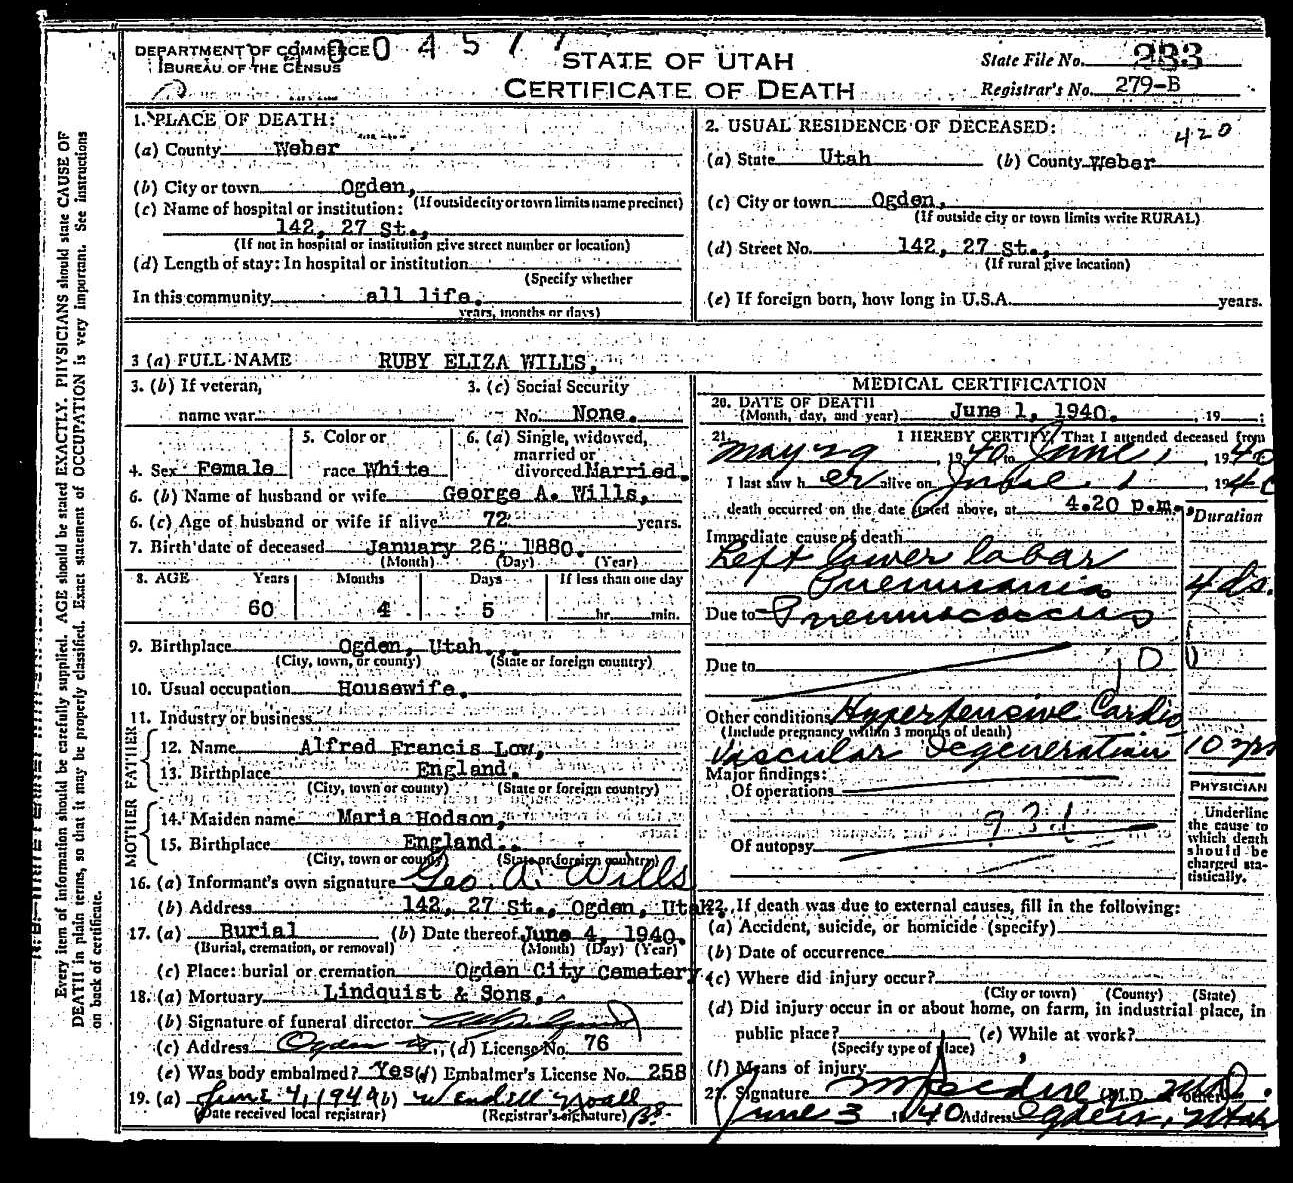 DEPARTMENT OF COMMERCE
BUREAU OF THE CENSUS
STATE OF UTAH
CERTIFICATE OF DEATH
State File No. 233
Registrar's No. 279-B
1. PLACE OF DEATH:
(a) County Weber
(b) City or town Ogden,
(If outside city or town limits name precinct)
(c) Name of hospital or institution:
142, 27 St.,
(If not in hospital or institution give street number or location)
(d) Length of stay: In hospital or institution
(Specify whether
In this community all life.
years, months or days)
2. USUAL RESIDENCE OF DECEASED:
420
(a) State Utah (b) County Weber
(c) City or town Ogden,
(If outside city or town limits write RURAL)
(d) Street No. 142, 27 St.,
(If rural give location)
(e) If foreign born, how long in U.S.A. years.
3 (a) FULL NAME RUBY ELIZA WILLS,
3. (b) If veteran,
name war.
3. (c) Social Security
No. None.
4. Sex Female
5. Color or
race White
6. (a) Single, widowed,
married or
divorced Married.
6. (b) Name of husband or wife George A. Wills,
6. (c) Age of husband or wife if alive 72 years.
7. Birth date of deceased January 26, 1880.
(Month) (Day) (Year)
8. AGE Years Months Days If less than one day
60 4 5 hr. min.
9. Birthplace Ogden, Utah.
(City, town, or county) (State or foreign country)
10. Usual occupation Housewife.
11. Industry or business
FATHER
12. Name Alfred Francis Low,
13. Birthplace England.
(City, town or county) (State or foreign country)
MOTHER
14. Maiden name Maria Hodson,
15. Birthplace England.
(City, town or county) (State or foreign country)
16. (a) Informant's own signature Geo. A. Wills
(b) Address 142, 27 St., Ogden, Utah.
17. (a) Burial (b) Date thereof June 4, 1940.
(Burial, cremation, or removal) (Month) (Day) (Year)
(c) Place: burial or cremation Ogden City Cemetery.
18. (a) Mortuary Lindquist & Sons,
(b) Signature of funeral director
(c) Address Ogden (d) License No. 76
(e) Was body embalmed? Yes (f) Embalmer's License No. 258
19. (a) June 4, 1940 (b) Wendell Noall
(Date received local registrar) (Registrar's signature)
MEDICAL CERTIFICATION
20. DATE OF DEATH
(Month, day, and year) June 1, 1940. , 19 ;
21. I HEREBY CERTIFY, That I attended deceased from
May 29, 1940 to June 1, 1940
I last saw her alive on June 1, 1940
death occurred on the date stated above, at 4.20 p.m.
Duration
Immediate cause of death
Left lower lobar
Pneumonia 4 ds.
Due to Pneumococcus
Due to
Other conditions Hypertensive Cardio
(Include pregnancy within 3 months of death)
Vascular Degeneration 10 yrs
Major findings:
Of operations
Of autopsy
PHYSICIAN
Underline
the cause to
which death
should be
charged sta-
tistically.
22. If death was due to external causes, fill in the following:
(a) Accident, suicide, or homicide (specify)
(b) Date of occurrence
(c) Where did injury occur?
(City or town) (County) (State)
(d) Did injury occur in or about home, on farm, in industrial place, in
public place? (e) While at work?
(Specify type of place)
(f) Means of injury
Signature
June 3 1940 Address Ogden, Utah
Every item of information should be carefully supplied. AGE should be stated EXACTLY. PHYSICIANS should state CAUSE OF
DEATH in plain terms, so that it may be properly classified. Exact statement of OCCUPATION is very important. See instructions
on back of certificate.